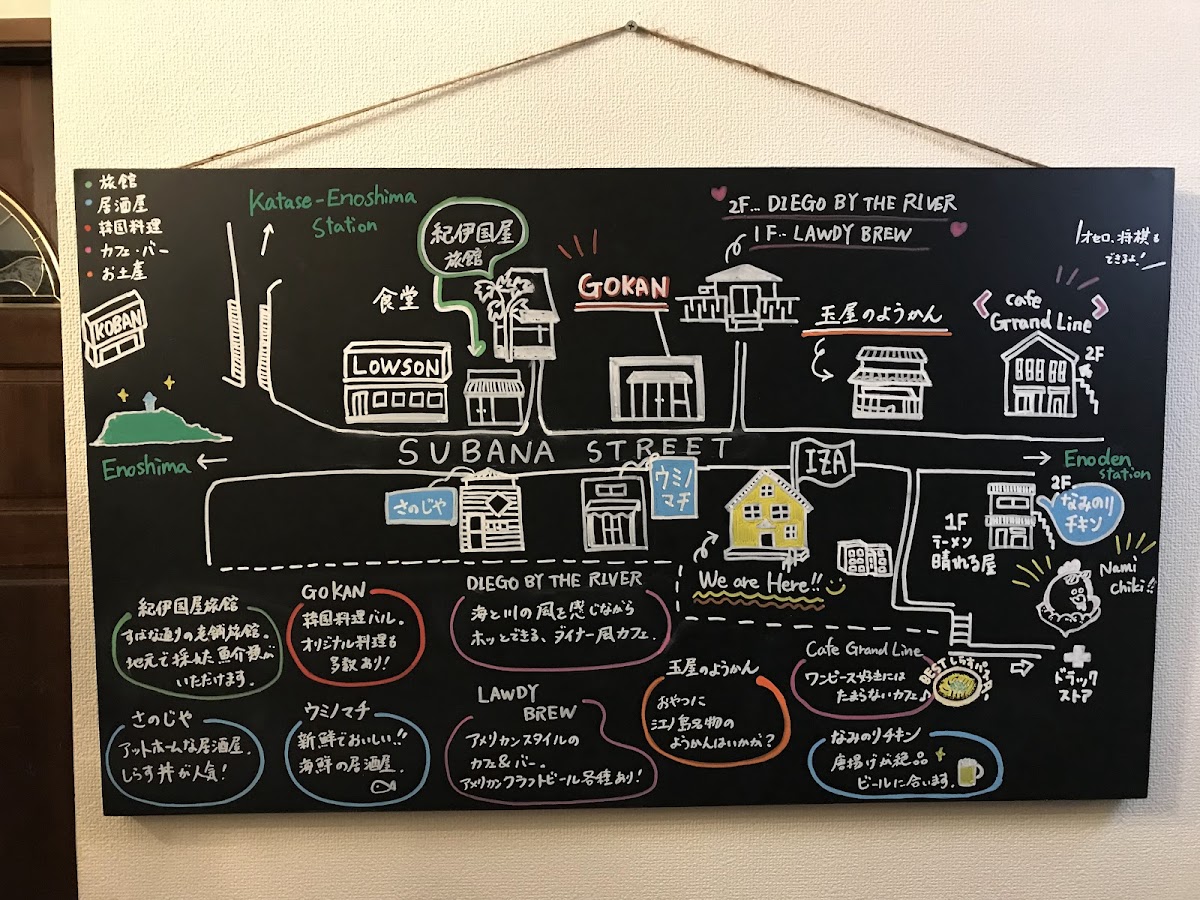 旅館
居酒屋
韓国料理
カフェ・バー
お土産
KOBAN
Katase-Enoshima
Station
紀伊国屋
旅館
食堂
LOWSON
GOKAN
2F... DIEGO BY THE RIVER
1F... LAWDY BREW
玉屋のようかん
オセロ、将棋も
できるよ!
cafe
Grand Line
2F
SUBANA STREET
Enoshima
Enoden
station
さのじや
ウミノ
マチ
IZA
We are Here!!
2F
なみのり
チキン
1F
ラーメン
晴れる屋
Nami
chiki!!
ドラック
ストア
紀伊国屋旅館
すばな通りの老舗旅館。
地元で採れた魚介類が
いただけます。
GOKAN
韓国料理バル。
オリジナル料理も
多数あり!
DIEGO BY THE RIVER
海と川の風を感じながら
ホッとできる、ダイナー風カフェ。
さのじや
アットホームな居酒屋。
しらす丼が人気!
ウミノマチ
新鮮でおいしい!!
海鮮の居酒屋。
LAWDY
BREW
アメリカンスタイルの
カフェ&バー。
アメリカンクラフトビール各種あり!
玉屋のようかん
おやつに
江ノ島名物の
ようかんはいかが?
Cafe Grand Line
ワンピース好きには
たまらないカフェ♪
BEST しらすパスタ!
なみのりチキン
唐揚げが絶品
ビールに合います。